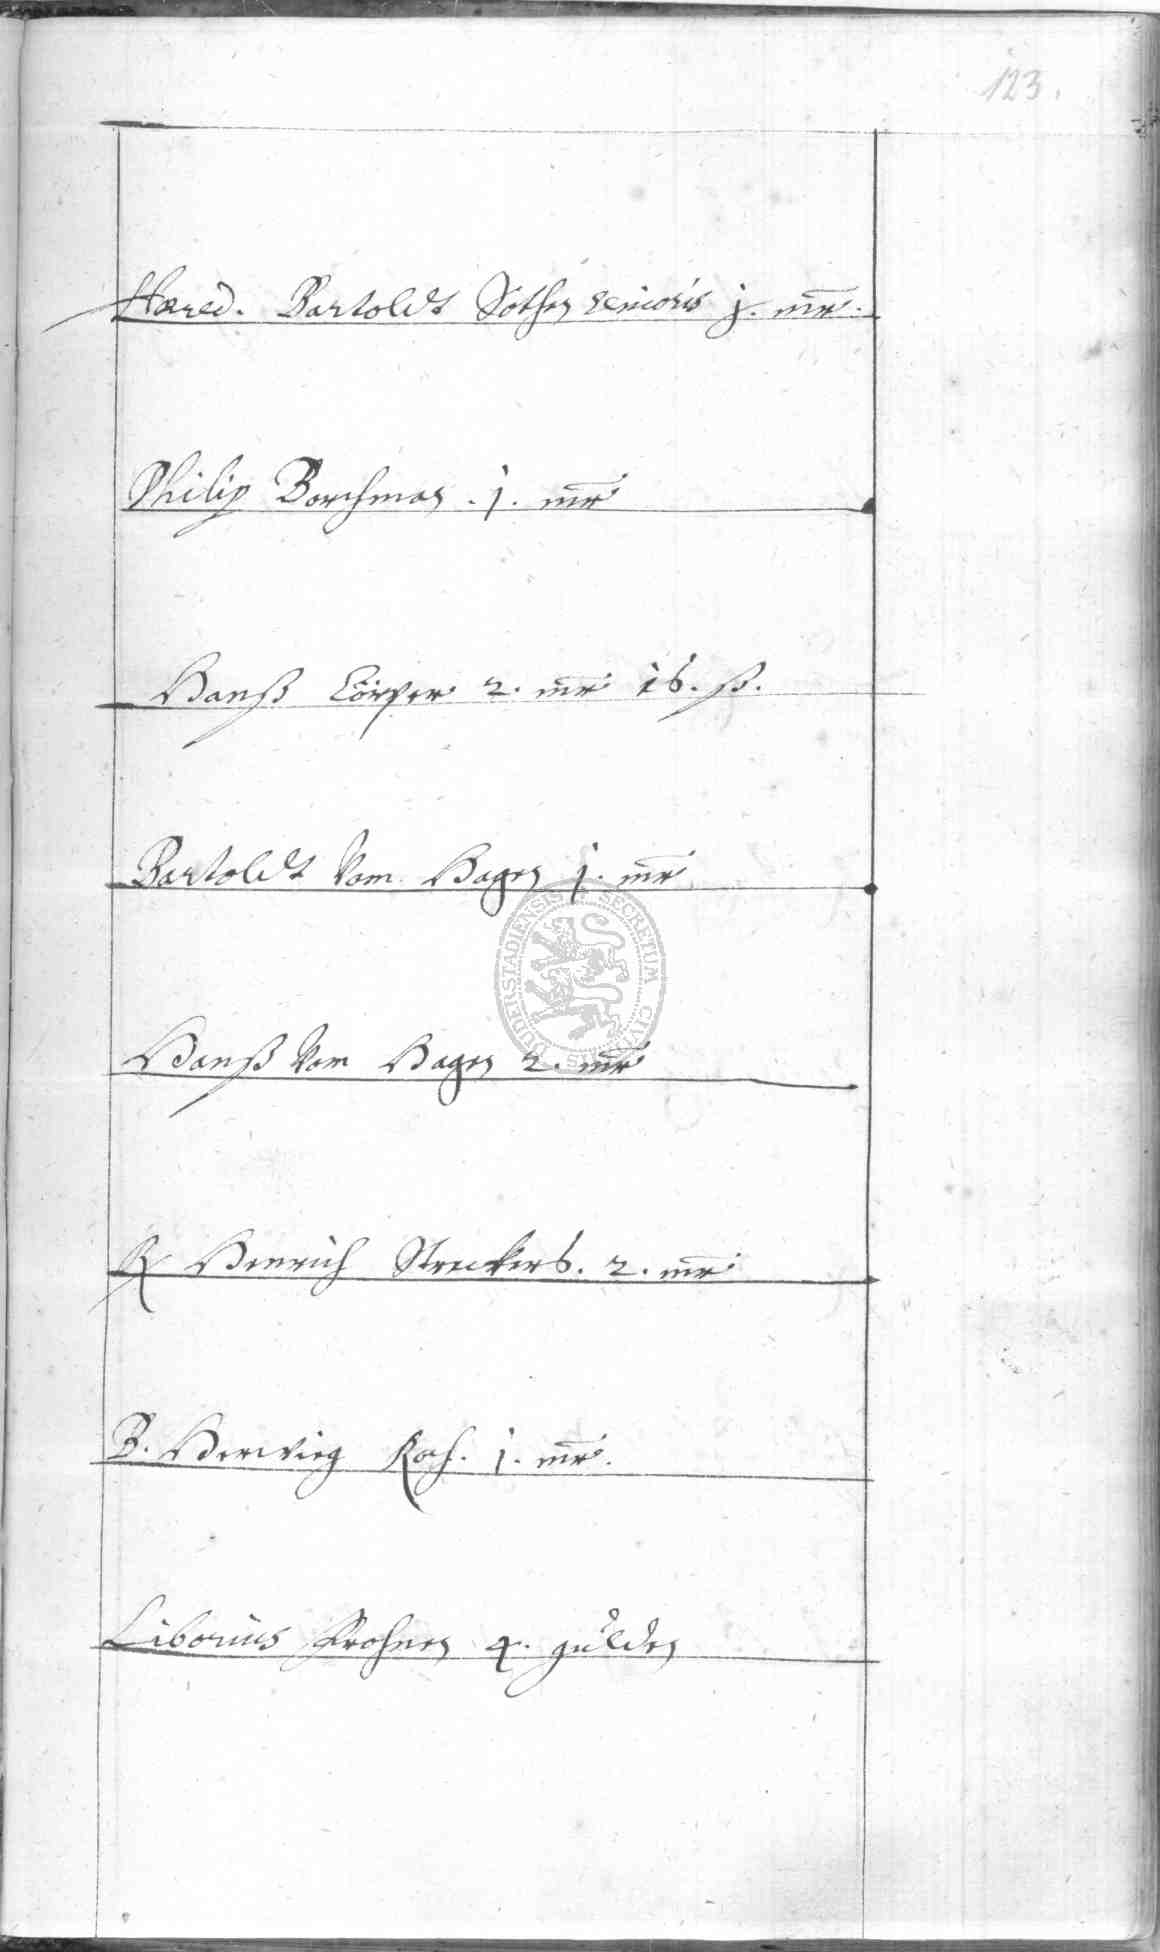 123.
Hæred. Bartoldt Sothen senioris j. mr.
Philip Borchman . j . mr
Hanß Cörver 2. mr 16. ß.
Bartoldt Vom Hagen j. mr
Hanß Vom Hagen 2. mr
H Henrich Streckers. 2. mr
B. Herwieg Koch. 1. mr.
Liborius 4. gulden
SECRETUM CIVITATIS DUDERSTADIENSIS